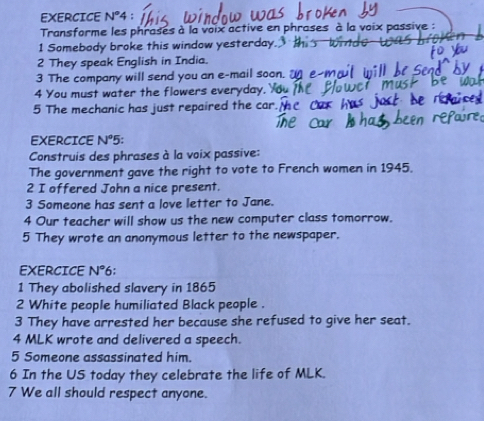 EXERCICE N°4 : This window was broken by
Transforme les phrases à la voix active en phrases à la voix passive :
1 Somebody broke this window yesterday. this windo was broken b
to you
2 They speak English in India.
3 The company will send you an e-mail soon. an e-mail will be send by
4 You must water the flowers everyday. You the flower must be wat
5 The mechanic has just repaired the car. The car has just be
The car has been repaired
EXERCICE N°5:
Construis des phrases à la voix passive:
The government gave the right to vote to French women in 1945.
2 I offered John a nice present.
3 Someone has sent a love letter to Jane.
4 Our teacher will show us the new computer class tomorrow.
5 They wrote an anonymous letter to the newspaper.
EXERCICE N°6:
1 They abolished slavery in 1865
2 White people humiliated Black people .
3 They have arrested her because she refused to give her seat.
4 MLK wrote and delivered a speech.
5 Someone assassinated him.
6 In the US today they celebrate the life of MLK.
7 We all should respect anyone.